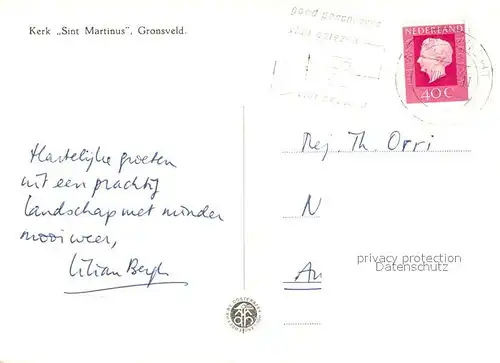 Kerk „Sint Martinus”, Gronsveld.
NEDERLAND
40c
Hartelijke groeten
uit een prachtig
landschap met minder
mooi weer,
Lilian Bergh
Mej. Th. Orri
N
An
privacy protection
Datenschutz